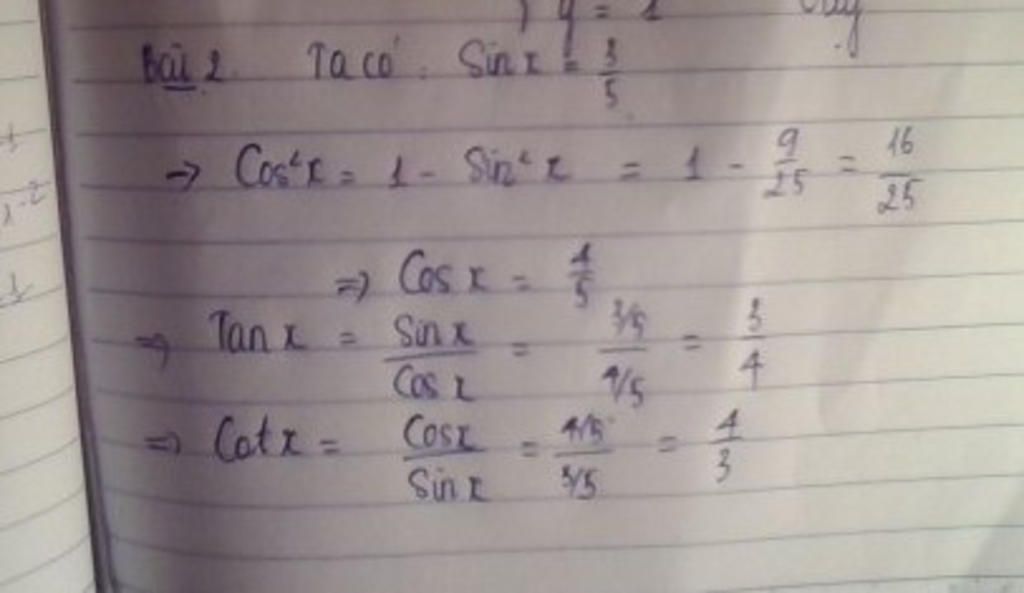 ) y = 1
Bài 2. Ta có: Sin x = 3/5
→ Cos²x = 1 - Sin²x = 1 - 9/25 = 16/25
⇒ Cos x = 4/5
⇒ Tan x = Sin x / Cos x = 3/5 / 4/5 = 3/4
⇒ Cot x = Cos x / Sin x = 4/5 / 3/5 = 4/3